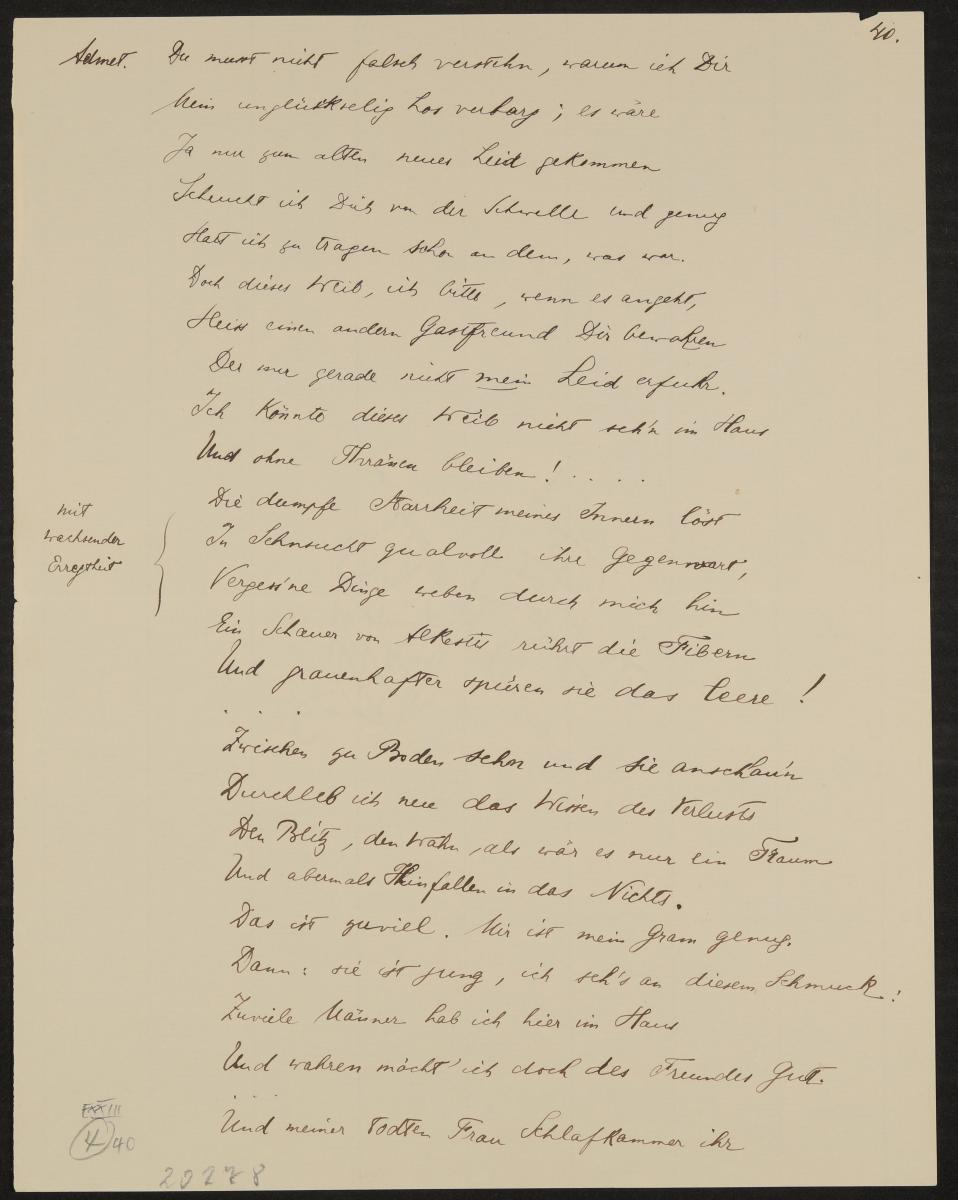 40.
Admet. Du musst nicht falsch verstehn, warum ich Dir
Mein unglückselig Los verbarg; es wäre
Ja nur zum alten neues Leid gekommen
Scheucht ich Dich von der Schwelle und genug
Hatt ich zu tragen schon an dem, was war.
Doch dieses Weib, ich bitte, wenn es angeht,
Heiss einen andern Gastfreund Dir bewahren
Der nur gerade nicht mein Leid erfuhr.
Ich könnte dieses Weib nicht seh'n im Haus
Und ohne Thränen bleiben! . . . .
Die dumpfe Starrheit meines Innern löst
mit
wachsender
Erregtheit
In Sehnsucht qualvoll ihre Gegenwart,
Vergess'ne Dinge weben durch mich hin
Ein Schauer von Alkestis rührt die Fibern
Und grauenhafter spüren sie das leere!
. . .
Zwischen zu Boden sehn und sie anschau'n
Durchleb ich neu das Wissen des Verlusts
Den Blitz, den Wahn, als wär es nur ein Traum
Und abermals Hinfallen in das Nichts.
Das ist zuviel. Mir ist mein Gram genug.
Dann: sie ist jung, ich seh's an diesem Schmuck:
Zuviele Männer hab ich hier im Haus
Und wahren möcht' ich doch des Freundes Gut.
. . .
Und meiner todten Frau Schlafkammer ihr
4 40
20278